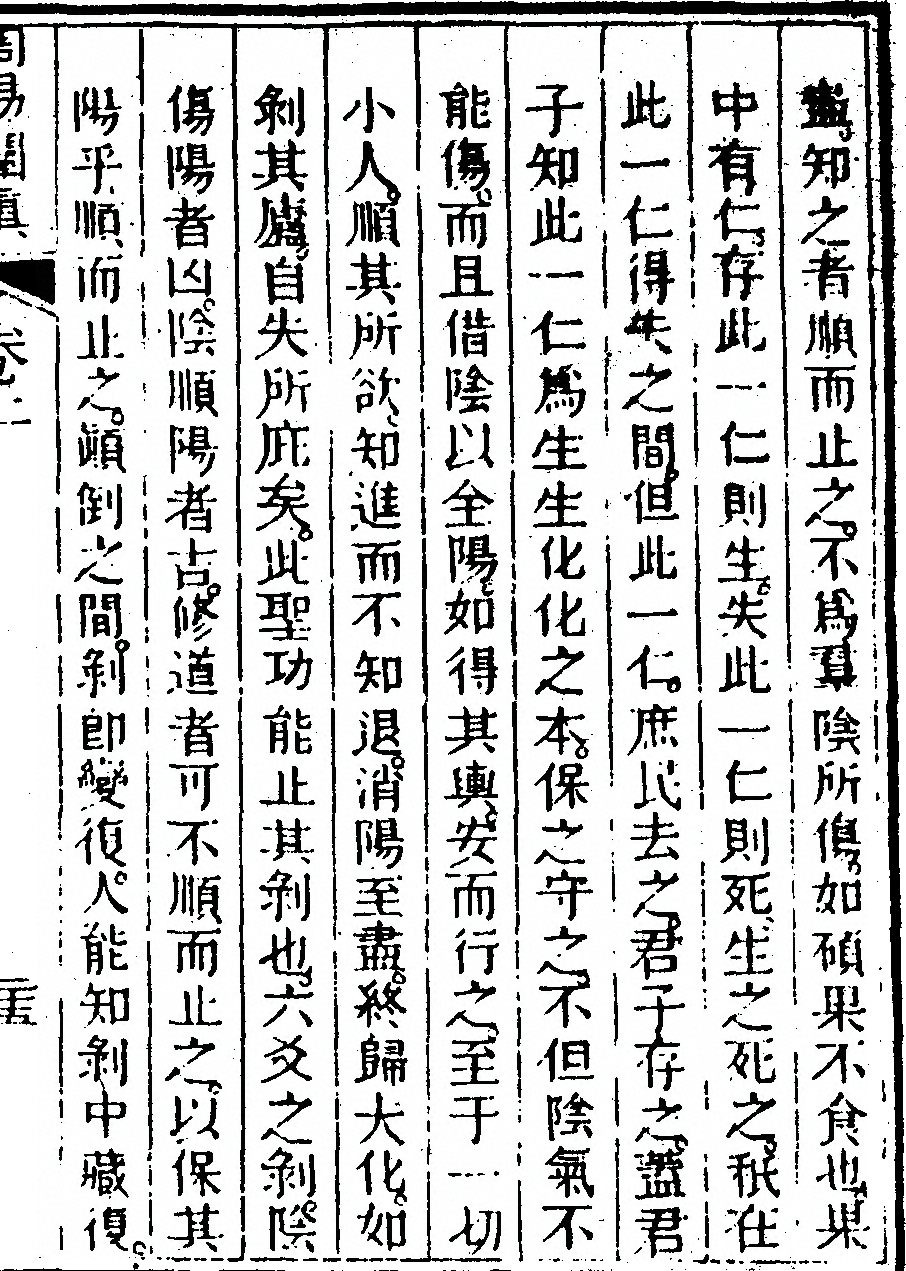 盡知之者順而止之不爲羣陰所傷如碩果不食也果
中有仁存此一仁則生失此一仁則死生之死之秖在
此一仁得失之間但此一仁庶民去之君子存之蓋君
子知此一仁爲生生化化之本保之守之不但陰氣不
能傷而且借陰以全陽如得其輿安而行之至于一切
小人順其所欲知進而不知退消陽至盡終歸大化如
剝其廬自失所庇矣此聖功能止其剝也六爻之剝陰
傷陽者凶陰順陽者吉修道者可不順而止之以保其
陽乎順而止之顛倒之間剝即變復人能知剝中藏復
周易闡眞 卷二